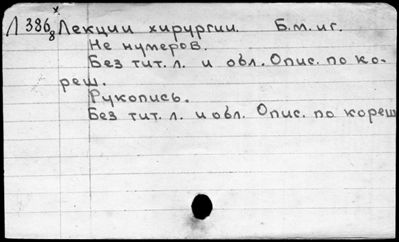 Л 386/8 х Лекции хирургии. Б.м.иг.
Не нумеров.
Без тит. л. и обл. Опис. по ко-
реш.
Рукопись.
Без тит. л. и обл. Опис. по кореш